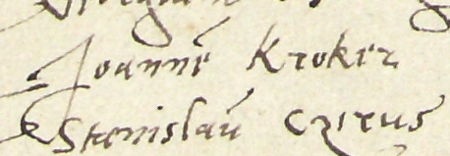 Joannē Kroker
Stanislaū Czyrus